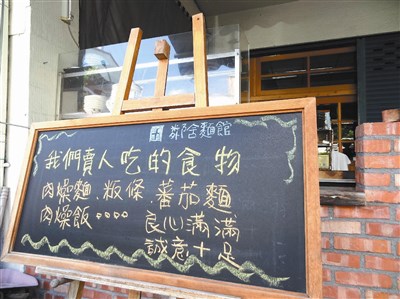 鄰舍麵館
我們賣人吃的食物
肉燥麵、粄條、蕃茄麵
肉燥飯。。。。良心滿滿
誠意十足